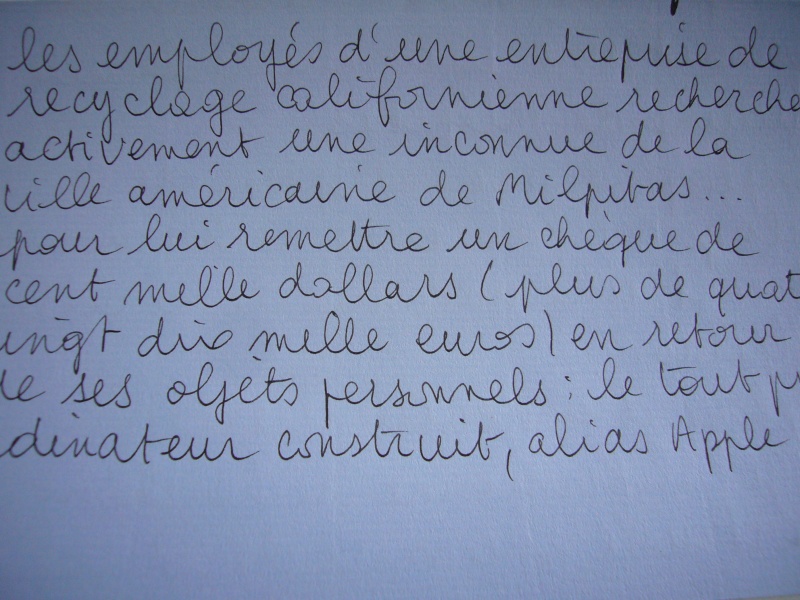 les employés d'une entreprise de
recyclage californienne recherche
activement une inconnue de la
ville américaine de Milpitas...
pour lui remettre un chèque de
cent mille dollars (plus de quat
vingt dix mille euros) en retour
de ses objets personnels : le tout pr
dinateur construit, alias Apple